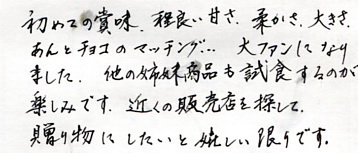 初めての賞味．程良い甘さ、柔かさ、大きさ、
あんとチョコのマッチング… 大ファンになり
ました．他の姉妹商品も試食するのが
楽しみです．近くの販売店を探して．
贈り物にしたいと嬉しい限りです。